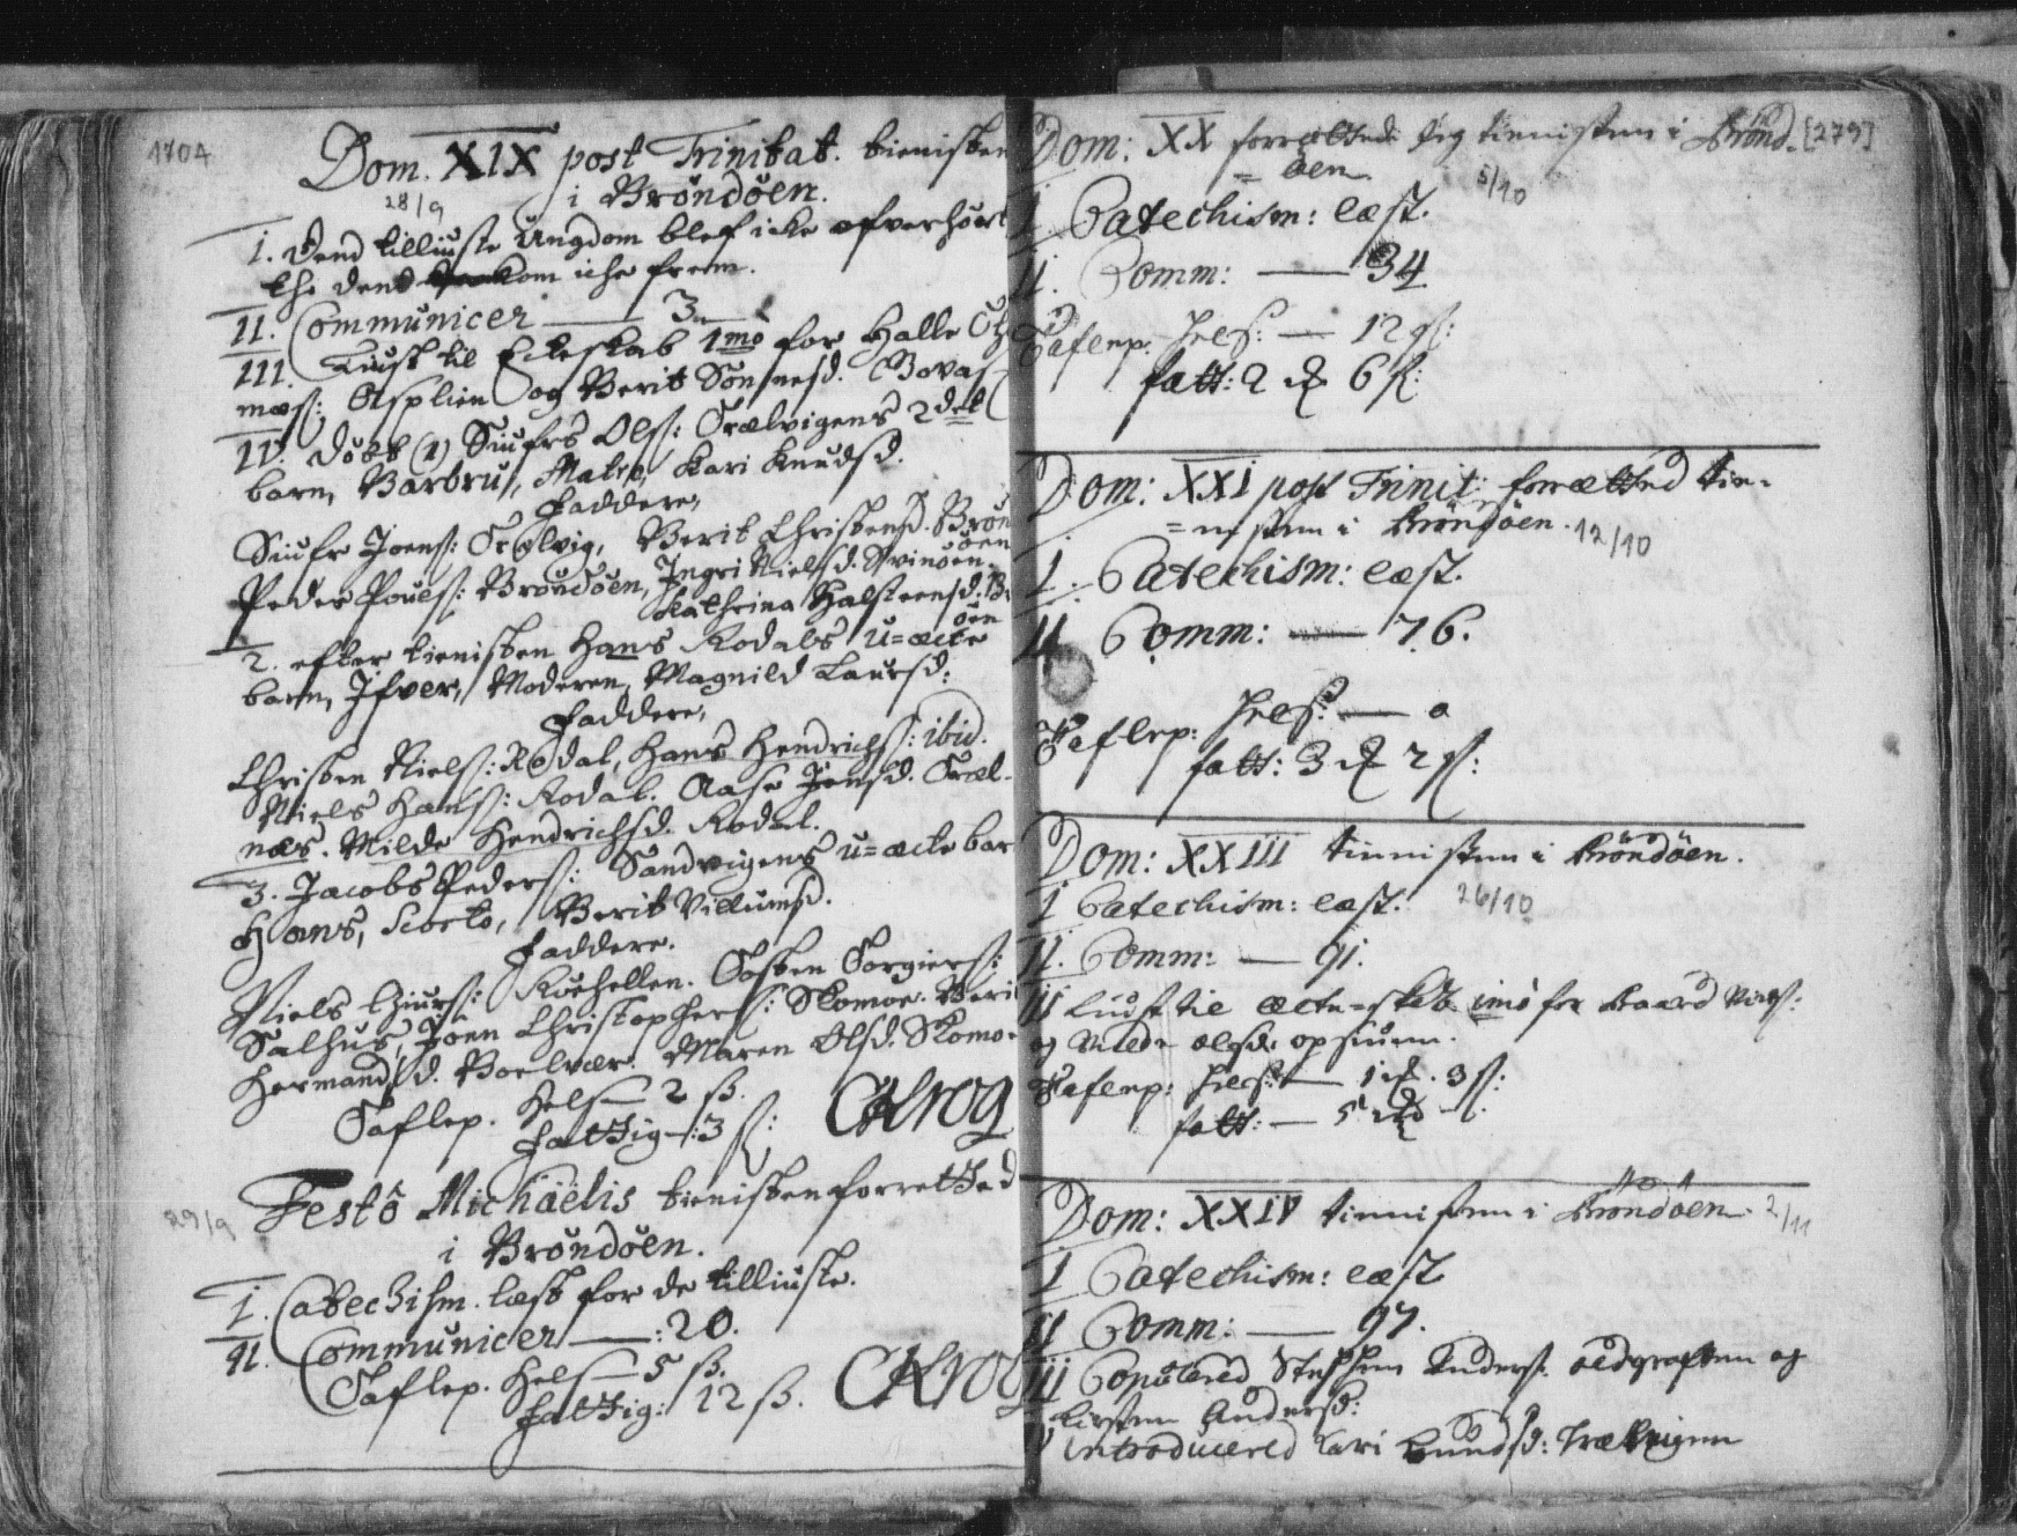 1704
Dom. XIX post Trinitat. tienisten
28/9 i Bröndöen.
1. Dend tilliuste Ungdom blef icke ofverhört
thi dend kom iche frem.
II. Communicer — 3.
III. Liust til Ecteskab 1mo for Halle
mæss: Asplien og Berit Sønnesd.
IV. Döbt (1) Siufrs Olss: Trælvigens 2det
barn, Barbru, Matr, Kari Knudsd.
Faddere,
Siufr Joenss: Trælvig, Berit Christensd. Brön
öen
Peder Pouelss: Bröndöen, Ingri Nielsd. Svinöen.
Kathrina Halsteensd. Br
öen
2. efter tienisten Hans Rodals u=æcte
barn, Ifver, Moderen, Magnild Laursd:
Faddere,
Christen Nielss: Rodal, Hans Hendrichss: ibid.
Niels Hanss: Rodal. Aase Jensd. Træl-
næs. Milde Hendrichsd. Rodal.
3. Jacobs Pederss: Sandvigens u=æcte bar
Hans, Scorto, Berit Villumsd.
Faddere.
Niels Siurss: Kuehellen. Tosten Torgierss:
Salhus, Joen Christophers: Skomoe. Beri
Hermandsd. Boelvær. Maren Olsd. Skomo-
Taflep. Hels — 2 ß.
Fattig — :3 ß: CKrog
29/9 Festô Michaëlis tienisten forretted
i Bröndöen.
I. Catechism. læst for de tilliuste.
II. Communicer — : 20.
Taflep. Hels — 5 ß.
Fattig: 12 ß. CKrog
Dom: XX forrettede Jeg tienisten i Brönd- [279]
= öen. 5/10
I. Catechism: læst.
II. Comm: — 34
Taflep. Hels: — 12 ß:
fatt: 2 6 ß:
Dom: XXI post Trinit: forrætted tie-
=nisten i Bröndöen. 12/10
I. Catechism: læst.
II Comm: — 76.
Taflep: Hels: — 0
fatt: 3 2 ß:
Dom: XXIII tiennisten i Bröndöen.
I Catechism: læst. 26/10
II. Comm: — 91.
III Liust til Ecte=skab 1mo for Baard Nielss:
og Milde Olsd:
Taflep: Hels: — 1 . 3 ß:
fatt: — 5
Dom: XXIV tiennisten i Bröndöen. 2/11
I Catechism: læst
II Comm: — 97.
III Copulered Stephen Anderss. oldgraften og
Kirsten Andersd:
IV introducered Kari Knudsd: Trælvigen